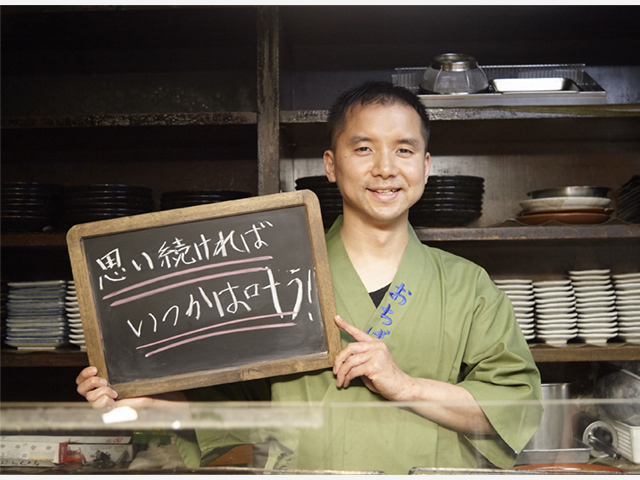 思い続ければ
いつかは叶う!
おちば